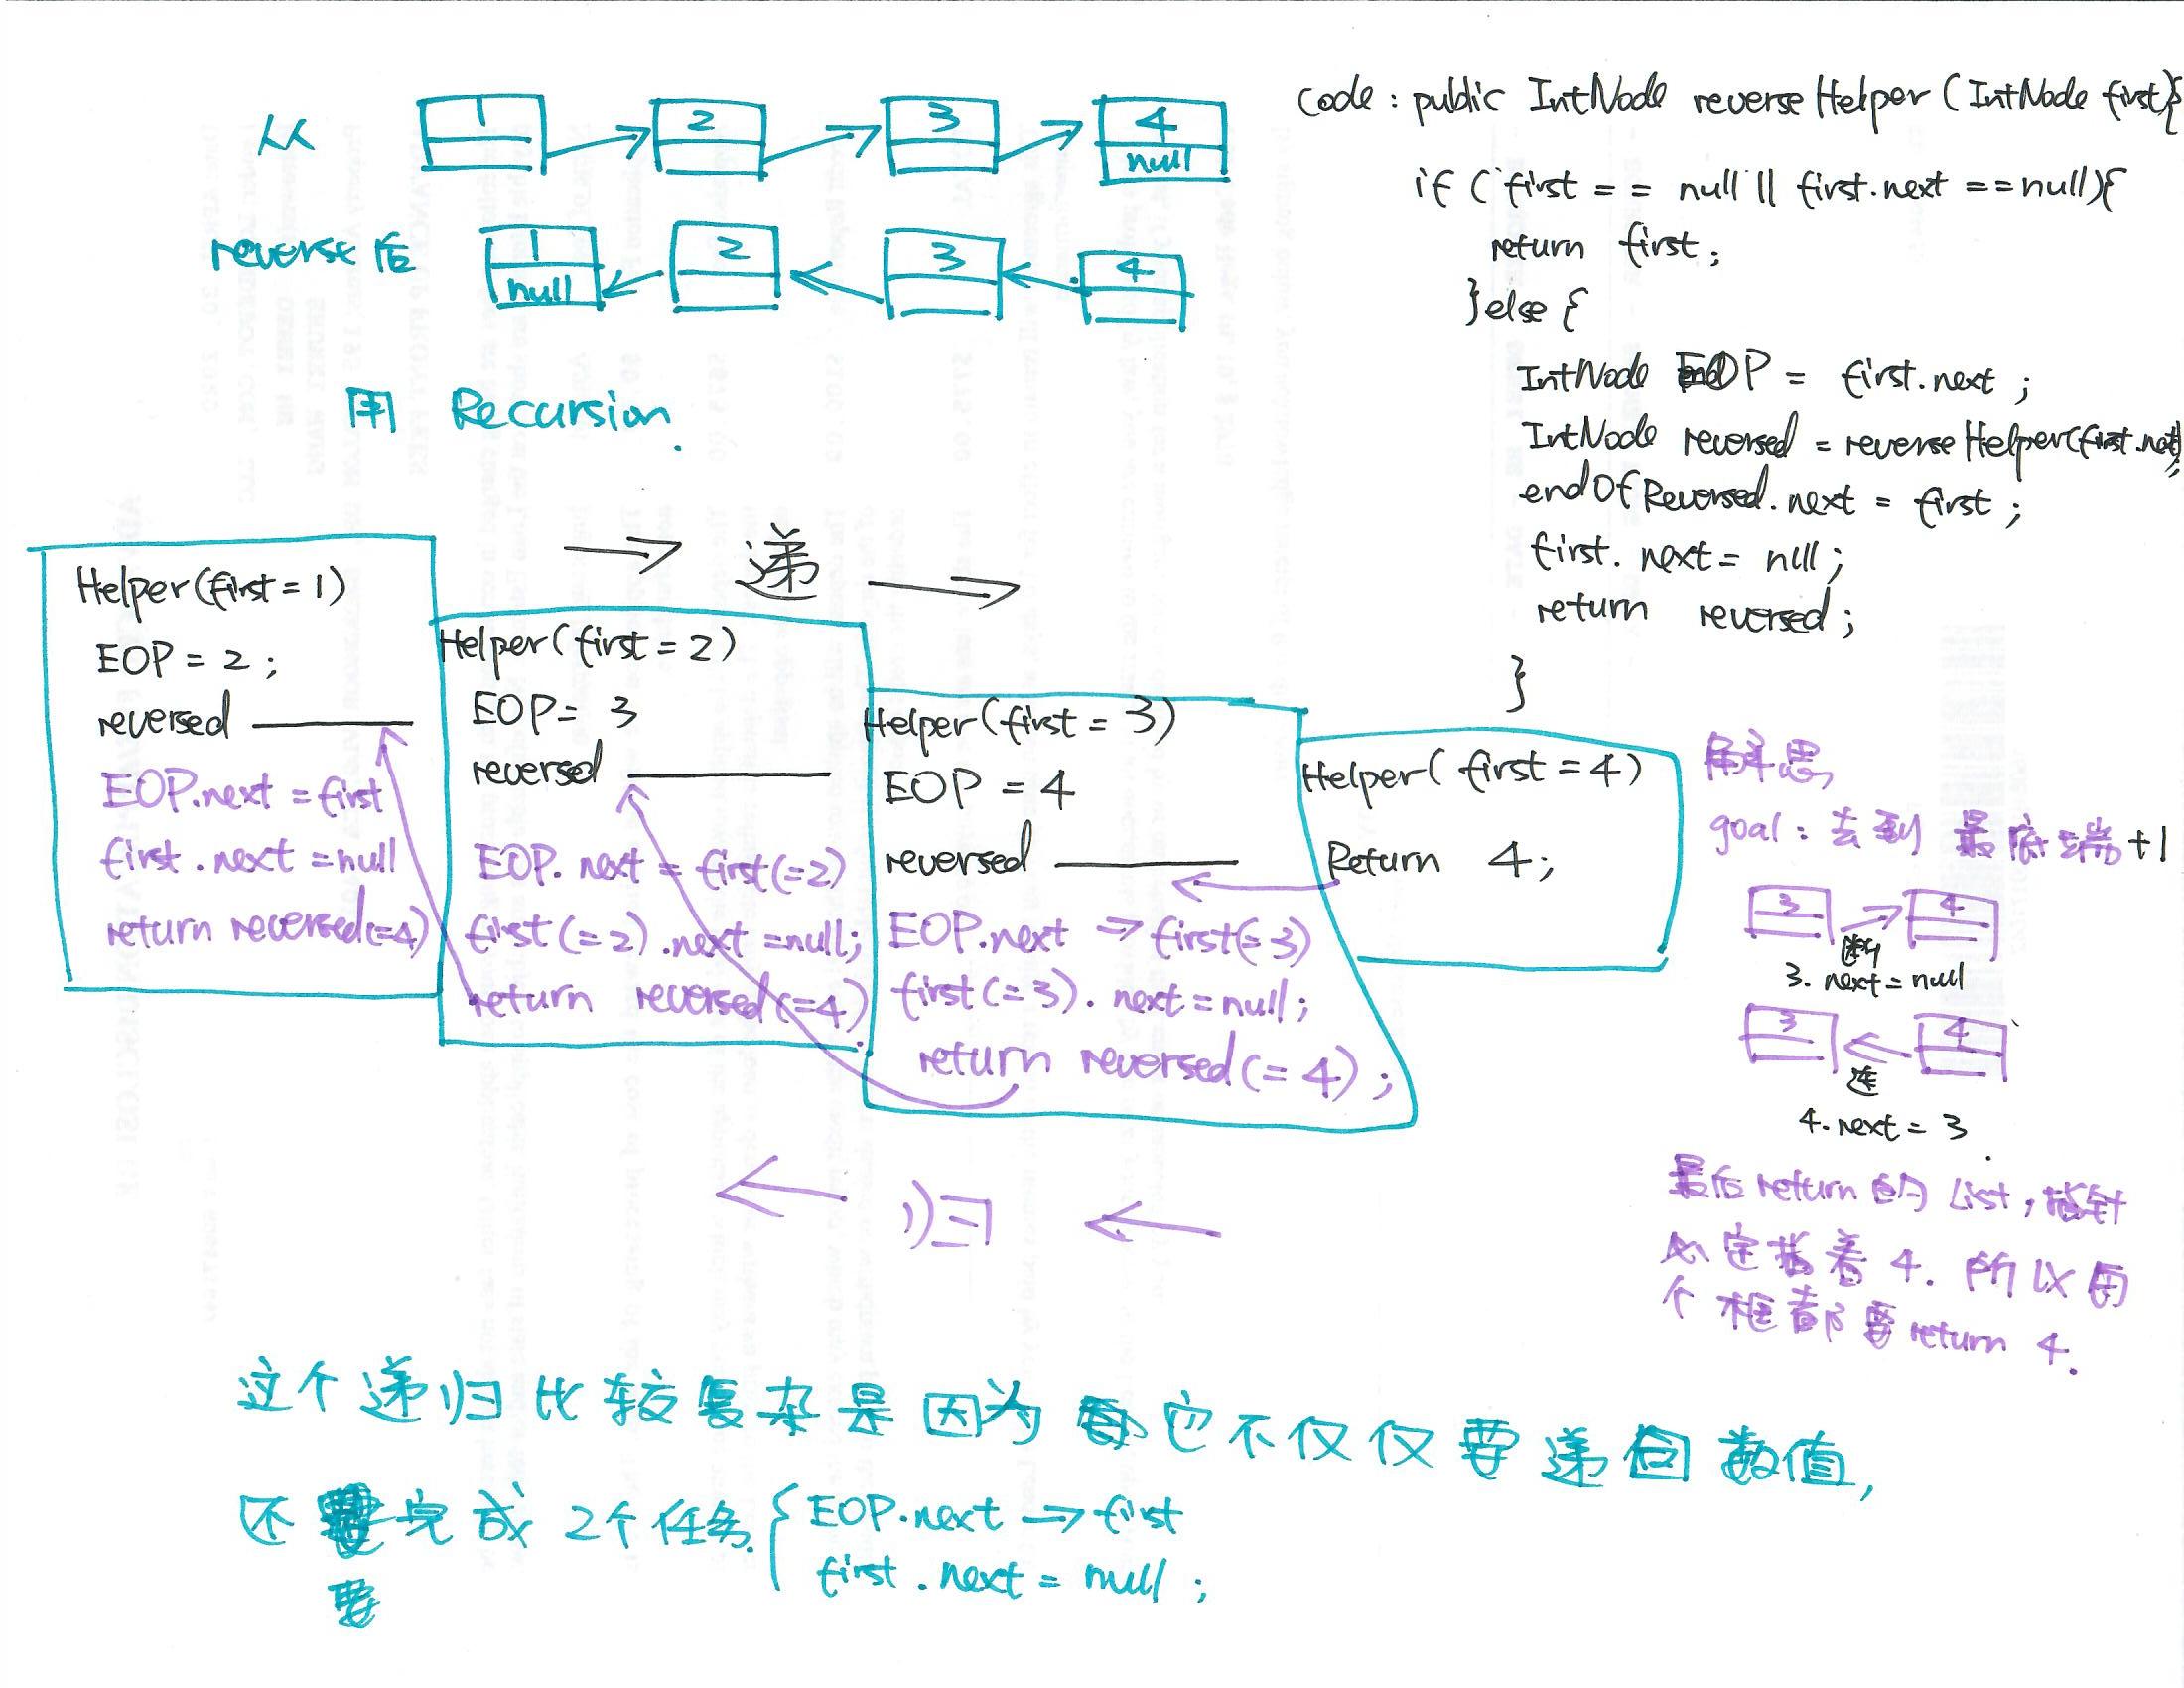 从
1
2
3
4
null
reverse后
1
null
2
3
4
用 Recursion.
code : public IntNode reverseHelper (IntNode first){
if ( first == null || first.next ==null){
return first ;
}else {
IntNode EOP = first.next ;
IntNode reversed = reverseHelper(first.next);
endOfReversed.next = first ;
first. next = null ;
return reversed ;
}
→ 递 →
Helper(first = 1)
EOP = 2 ;
reversed
EOP.next = first
first.next = null
return reversed(=4)
Helper(first = 2)
EOP = 3
reversed
EOP. next = first(=2)
first(=2).next =null;
return reversed(=4)
Helper(first = 3)
EOP = 4
reversed
EOP.next → first(=3)
first(=3). next = null;
return reversed(= 4) ;
Helper( first = 4)
Return 4 ;
← 归 ←
goal : 去到 最底端+1
3
4
断
3. next = null
3
4
连
4.next = 3
最后return的 List, 指针
必定指着 4. 所以每
个框都要return 4.
这个递归比较复杂是因为它不仅仅要递回数值,
还要完成 2个任务 { EOP.next → first
first . next = null ;